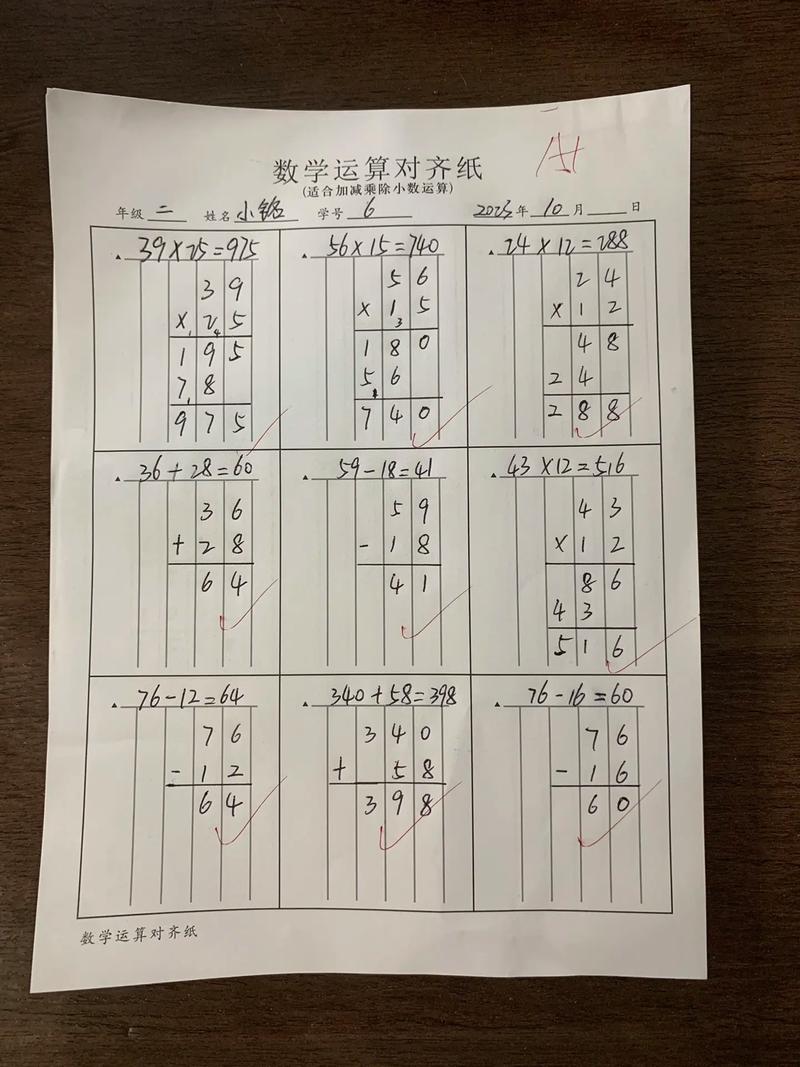 A+
数学运算对齐纸
(适合加减乘除小数运算)
年级 二 姓名 小铭 学号 6 2023年 10 月 日
39×25=975
39
×25
195
78
975
56×15=740
56
×15
180
56
740
24×12=288
24
×12
48
24
288
36+28=60
36
+28
64
59-18=41
59
-18
41
43×12=516
43
×12
86
43
516
76-12=64
76
-12
64
340+58=398
340
+58
398
76-16=60
76
-16
60
数学运算对齐纸